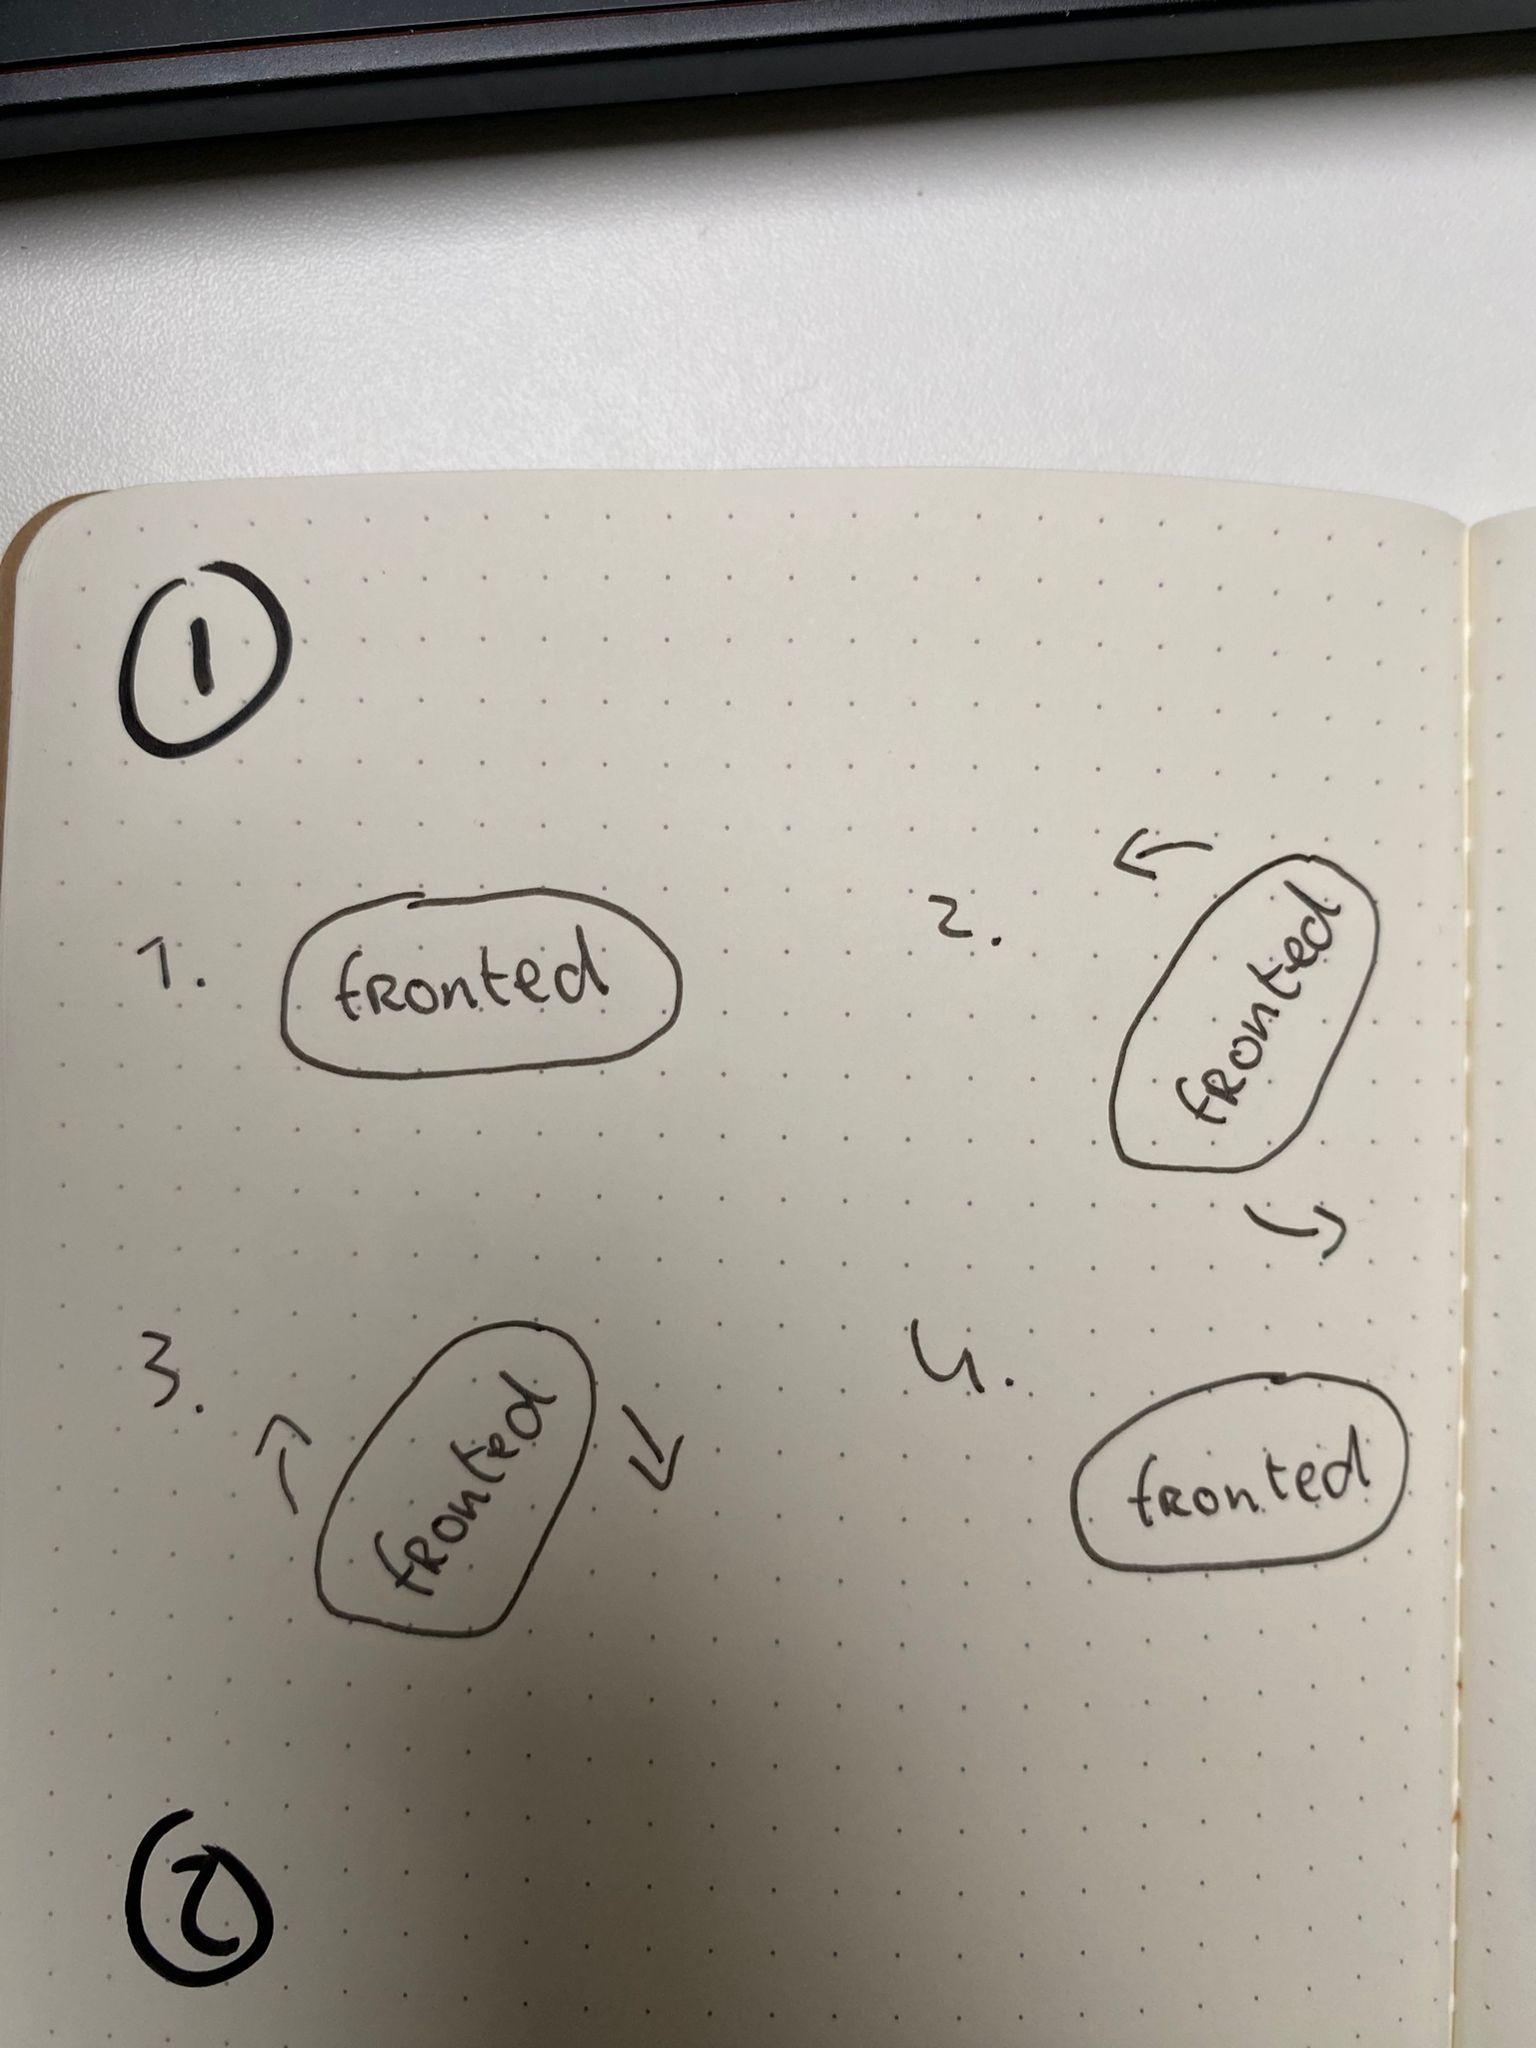 1
1. fronted
2. fronted
3. fronted
4. fronted
2